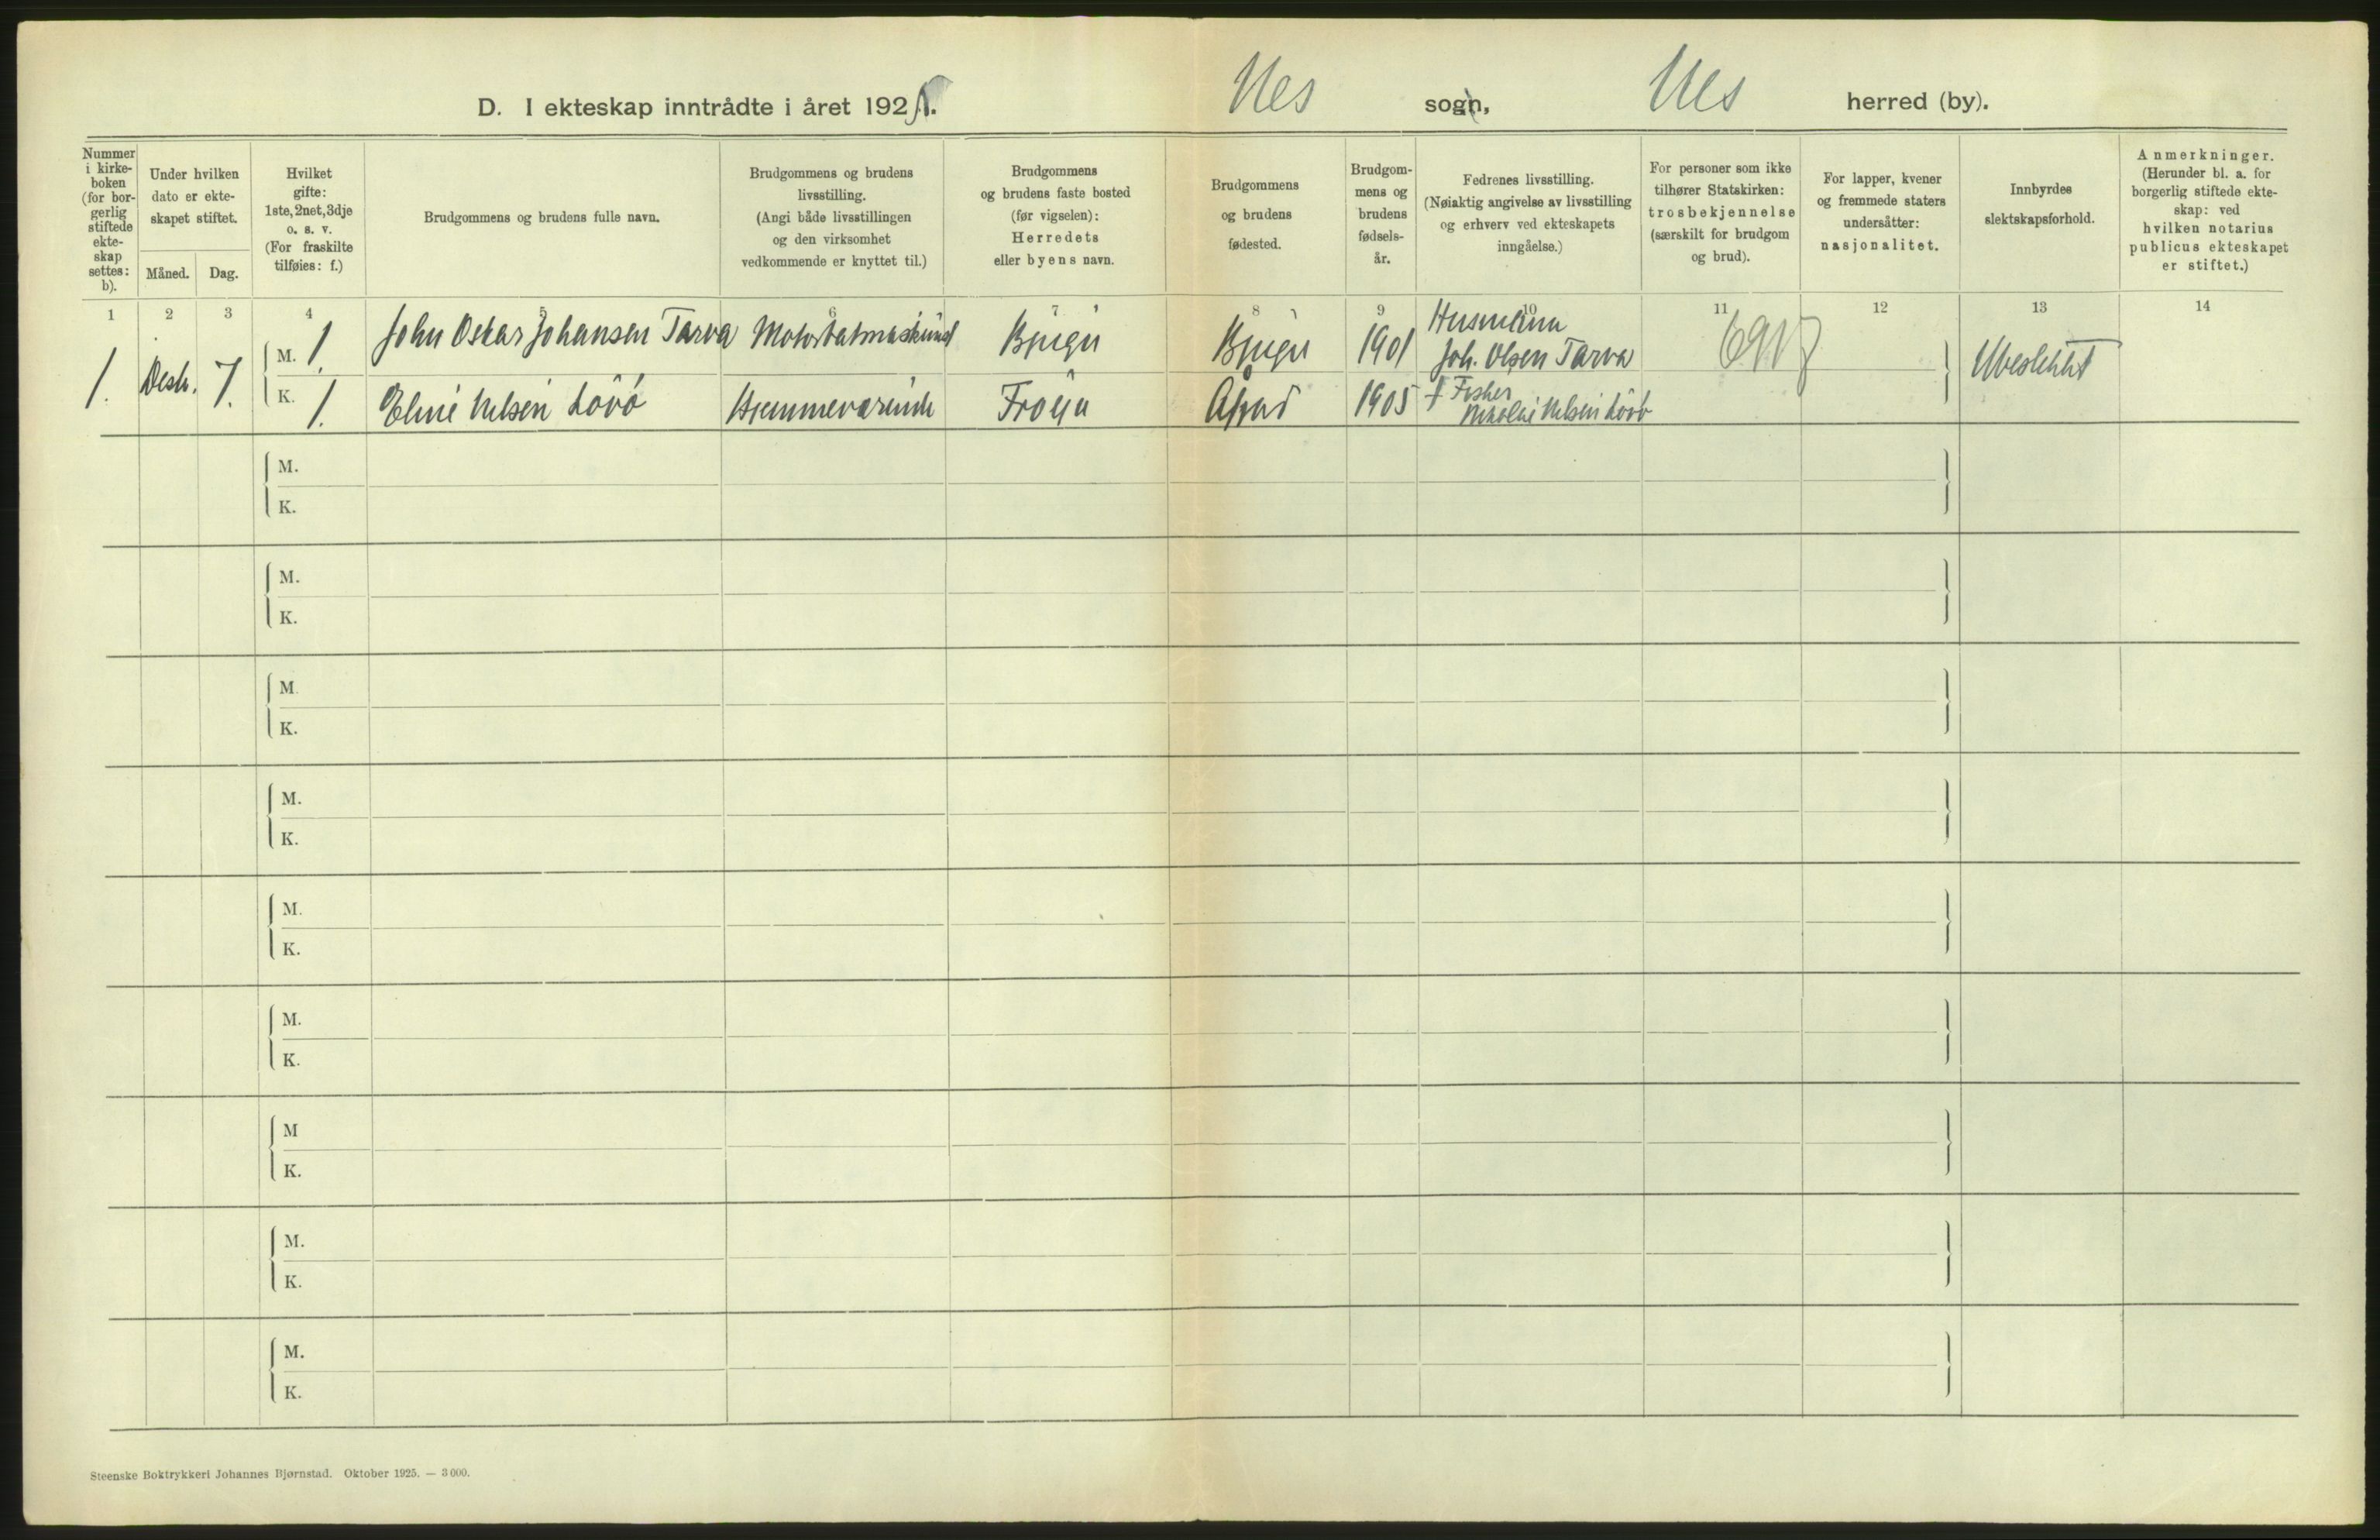 D. I ekteskap inntrådte i året 192
Nes sogn, Nes herred (by).
Nummer i kirke-boken (for bor-gerlig stiftede ekte-skap settes: b).
Under hvilken dato er ekte-skapet stiftet.
Måned. Dag.
Hvilket gifte: 1ste, 2net, 3dje o. s. v. (For fraskilte tilføies: f.)
Brudgommens og brudens fulle navn.
Brudgommens og brudens livsstilling. (Angi både livsstillingen og den virksomhet vedkommende er knyttet til.)
Brudgommens og brudens faste bosted (før vigselen): Herredets eller byens navn.
Brudgommens og brudens fødested.
Brudgom-mens og brudens fødsels-år.
Fedrenes livsstilling. (Nøiaktig angivelse av livsstilling og erhverv ved ekteskapets inngåelse.)
For personer som ikke tilhører Statskirken: trosbekjennelse (særskilt for brudgom og brud).
For lapper, kvener og fremmede staters undersåtter: nasjonalitet.
Innbyrdes slektskapsforhold.
Anmerkninger. (Herunder bl. a. for borgerlig stiftede ekte-skap: ved hvilken notarius publicus ekteskapet er stiftet.)
1 2 3 4 5 6 7 8 9 10 11 12 13 14
1. Desbr. 7.
M. 1. John Oskar Johansen Tarva Motorbåtmaskinist Bjugn Bjugn 1901 Husmann Joh. Olsen Tarva
K. 1. Eline Nelsen Lövö Hjemmeværende Fröya Åfjord 1905 † Fisker Nikolai Nelsen Lövö
Ubeslektet
M.
K.
M.
K.
M.
K.
M.
K.
M.
K.
M.
K.
M
K.
M.
K.
M.
K.
Steenske Boktrykkeri Johannes Bjørnstad. Oktober 1925. — 3 000.